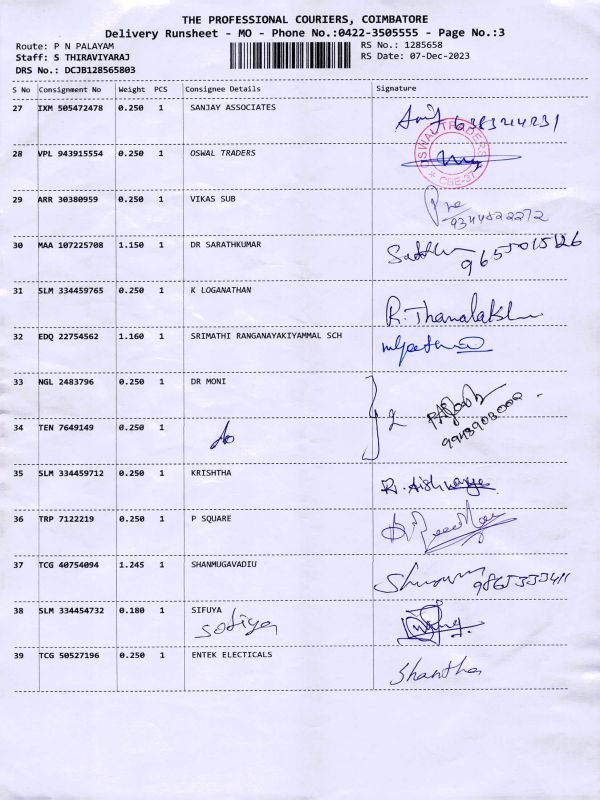 THE PROFESSIONAL COURIERS, COIMBATORE
Delivery Runsheet - MO - Phone No.:0422-3505555 - Page No.:3
Route: P N PALAYAM RS No.: 1285658
Staff: S THIRAVIYARAJ RS Date: 07-Dec-2023
DRS No.: DCJB128565803
S No Consignment No Weight PCS Consignee Details Signature
27 IXM 505472478 0.250 1 SANJAY ASSOCIATES
28 VPL 943915554 0.250 1 OSWAL TRADERS
OSWAL TRADERS
★ CBE-37 ★
29 ARR 30380959 0.250 1 VIKAS SUB
9344522272
30 MAA 107225708 1.150 1 DR SARATHKUMAR
31 SLM 334459765 0.250 1 K LOGANATHAN
32 EDQ 22754562 1.160 1 SRIMATHI RANGANAYAKIYAMMAL SCH
33 NGL 2483796 0.250 1 DR MONI
34 TEN 7649149 0.250 1 do
35 SLM 334459712 0.250 1 KRISHTHA R. Aishwarya
36 TRP 7122219 0.250 1 P SQUARE
37 TCG 40754094 1.245 1 SHANMUGAVADIU
38 SLM 334454732 0.180 1 SIFUYA
Sofiya
39 TCG 50527196 0.250 1 ENTEK ELECTICALS Shantha